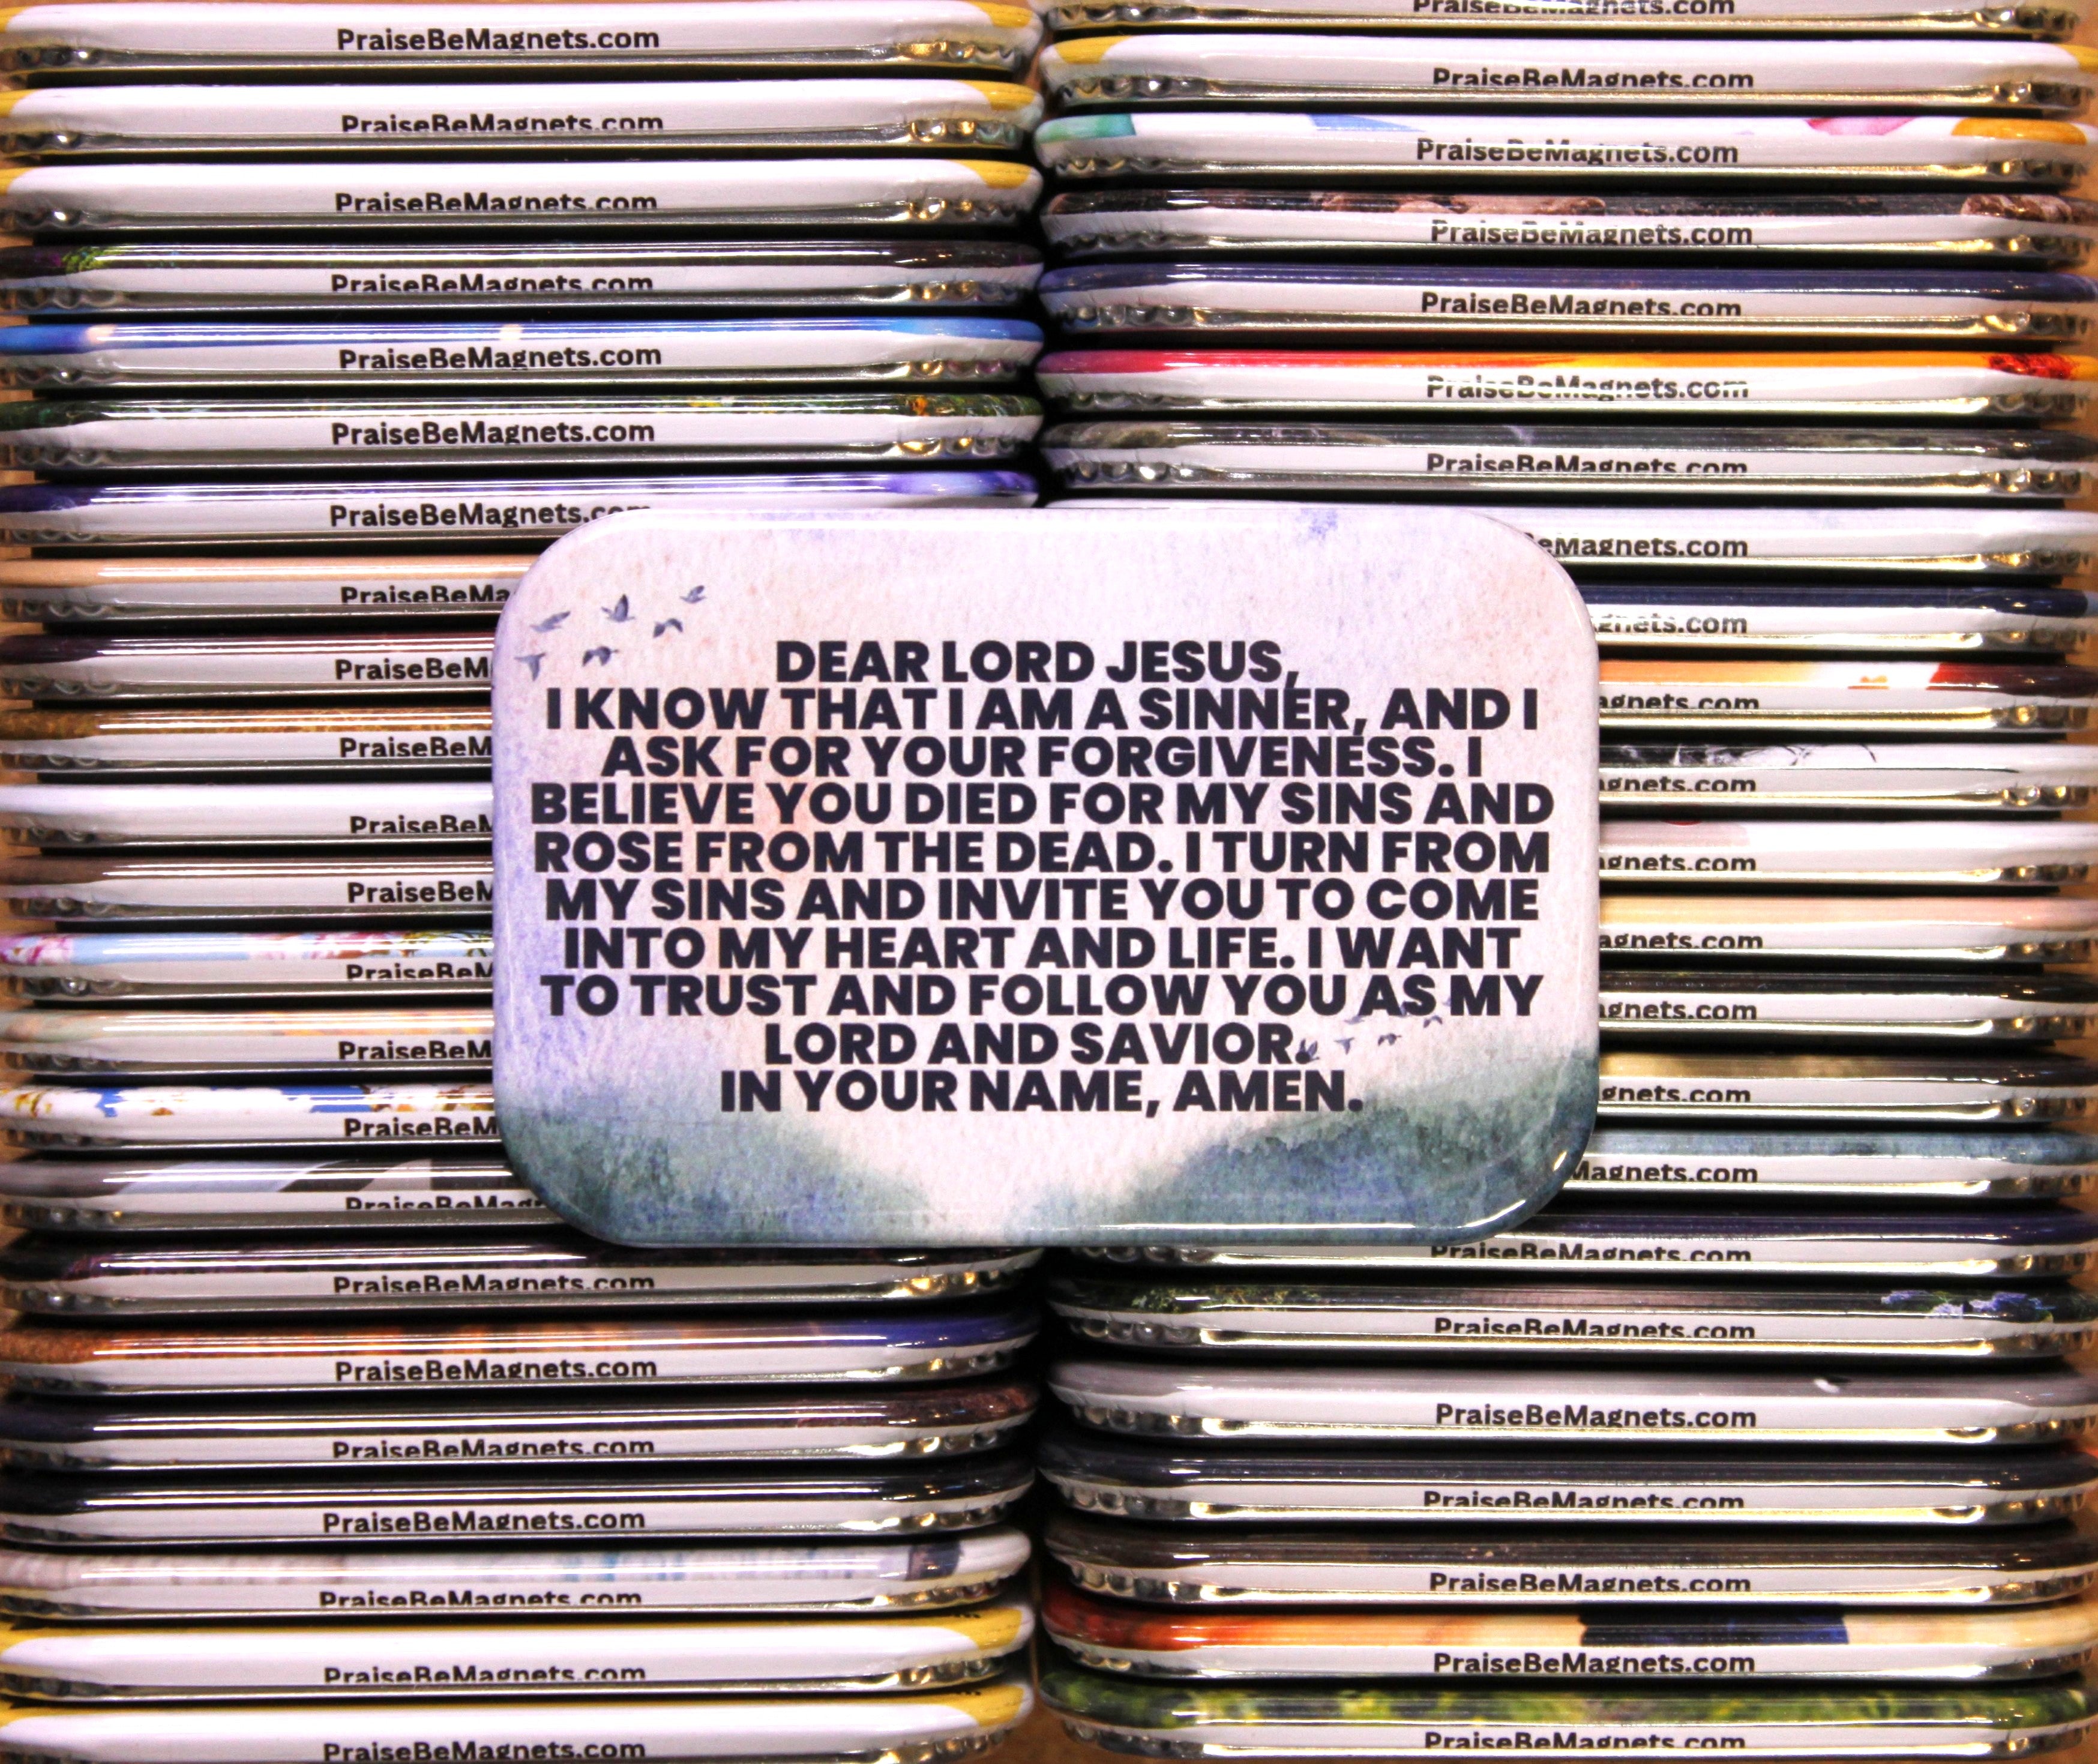 PraiseBeMagnets.com
PraiseBeMagnets.com
PraiseBeMagnets.com
PraiseBeMagnets.com
PraiseBeMagnets.com
PraiseBeMagnets.com
PraiseBeMagnets.com
PraiseBeMa
PraiseBeM
PraiseBeM
PraiseBeM
PraiseBeM
PraiseBeM
PraiseBeM
PraiseBeM
PraiseBeMag
PraiseBeMagnets.com
PraiseBeMagnets.com
PraiseBeMagnets.com
PraiseBeMagnets.com
PraiseBeMagnets.com
PraiseBeMagnets.com
PraiseBeMagnets.com
DEAR LORD JESUS,
I KNOW THAT I AM A SINNER, AND I
ASK FOR YOUR FORGIVENESS. I
BELIEVE YOU DIED FOR MY SINS AND
ROSE FROM THE DEAD. I TURN FROM
MY SINS AND INVITE YOU TO COME
INTO MY HEART AND LIFE. I WANT
TO TRUST AND FOLLOW YOU AS MY
LORD AND SAVIOR.
IN YOUR NAME, AMEN.
PraiseBeMagnets.com
PraiseBeMagnets.com
PraiseBeMagnets.com
PraiseBeMagnets.com
PraiseBeMagnets.com
PraiseBeMagnets.com
PraiseBeMagnets.com
eMagnets.com
gnets.com
agnets.com
gnets.com
gnets.com
agnets.com
gnets.com
gnets.com
Magnets.com
PraiseBeMagnets.com
PraiseBeMagnets.com
PraiseBeMagnets.com
PraiseBeMagnets.com
PraiseBeMagnets.com
PraiseBeMagnets.com
PraiseBeMagnets.com